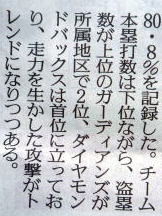 80・8％を記録した。チーム
本塁打数は下位ながら、盗塁
数が上位のガーディアンズが
所属地区で2位、ダイヤモン
ドバックスは首位に立ってお
り、走力を生かした攻撃がト
レンドになりつつある。